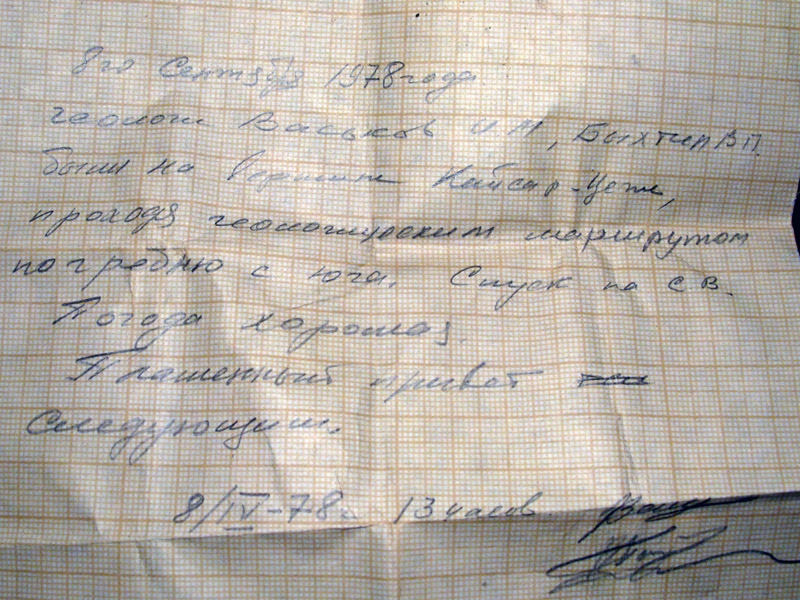 8го Сентября 1978 года
геологи Васьков И.М, Быхтин В П.
были на вершине Кайсар-Цети,
проходя геологическим маршрутом
по гребню с юга. Спуск на С В.
Погода хорошая.
Пламенный привет
следующим.
8/IV-78г. 13 часов